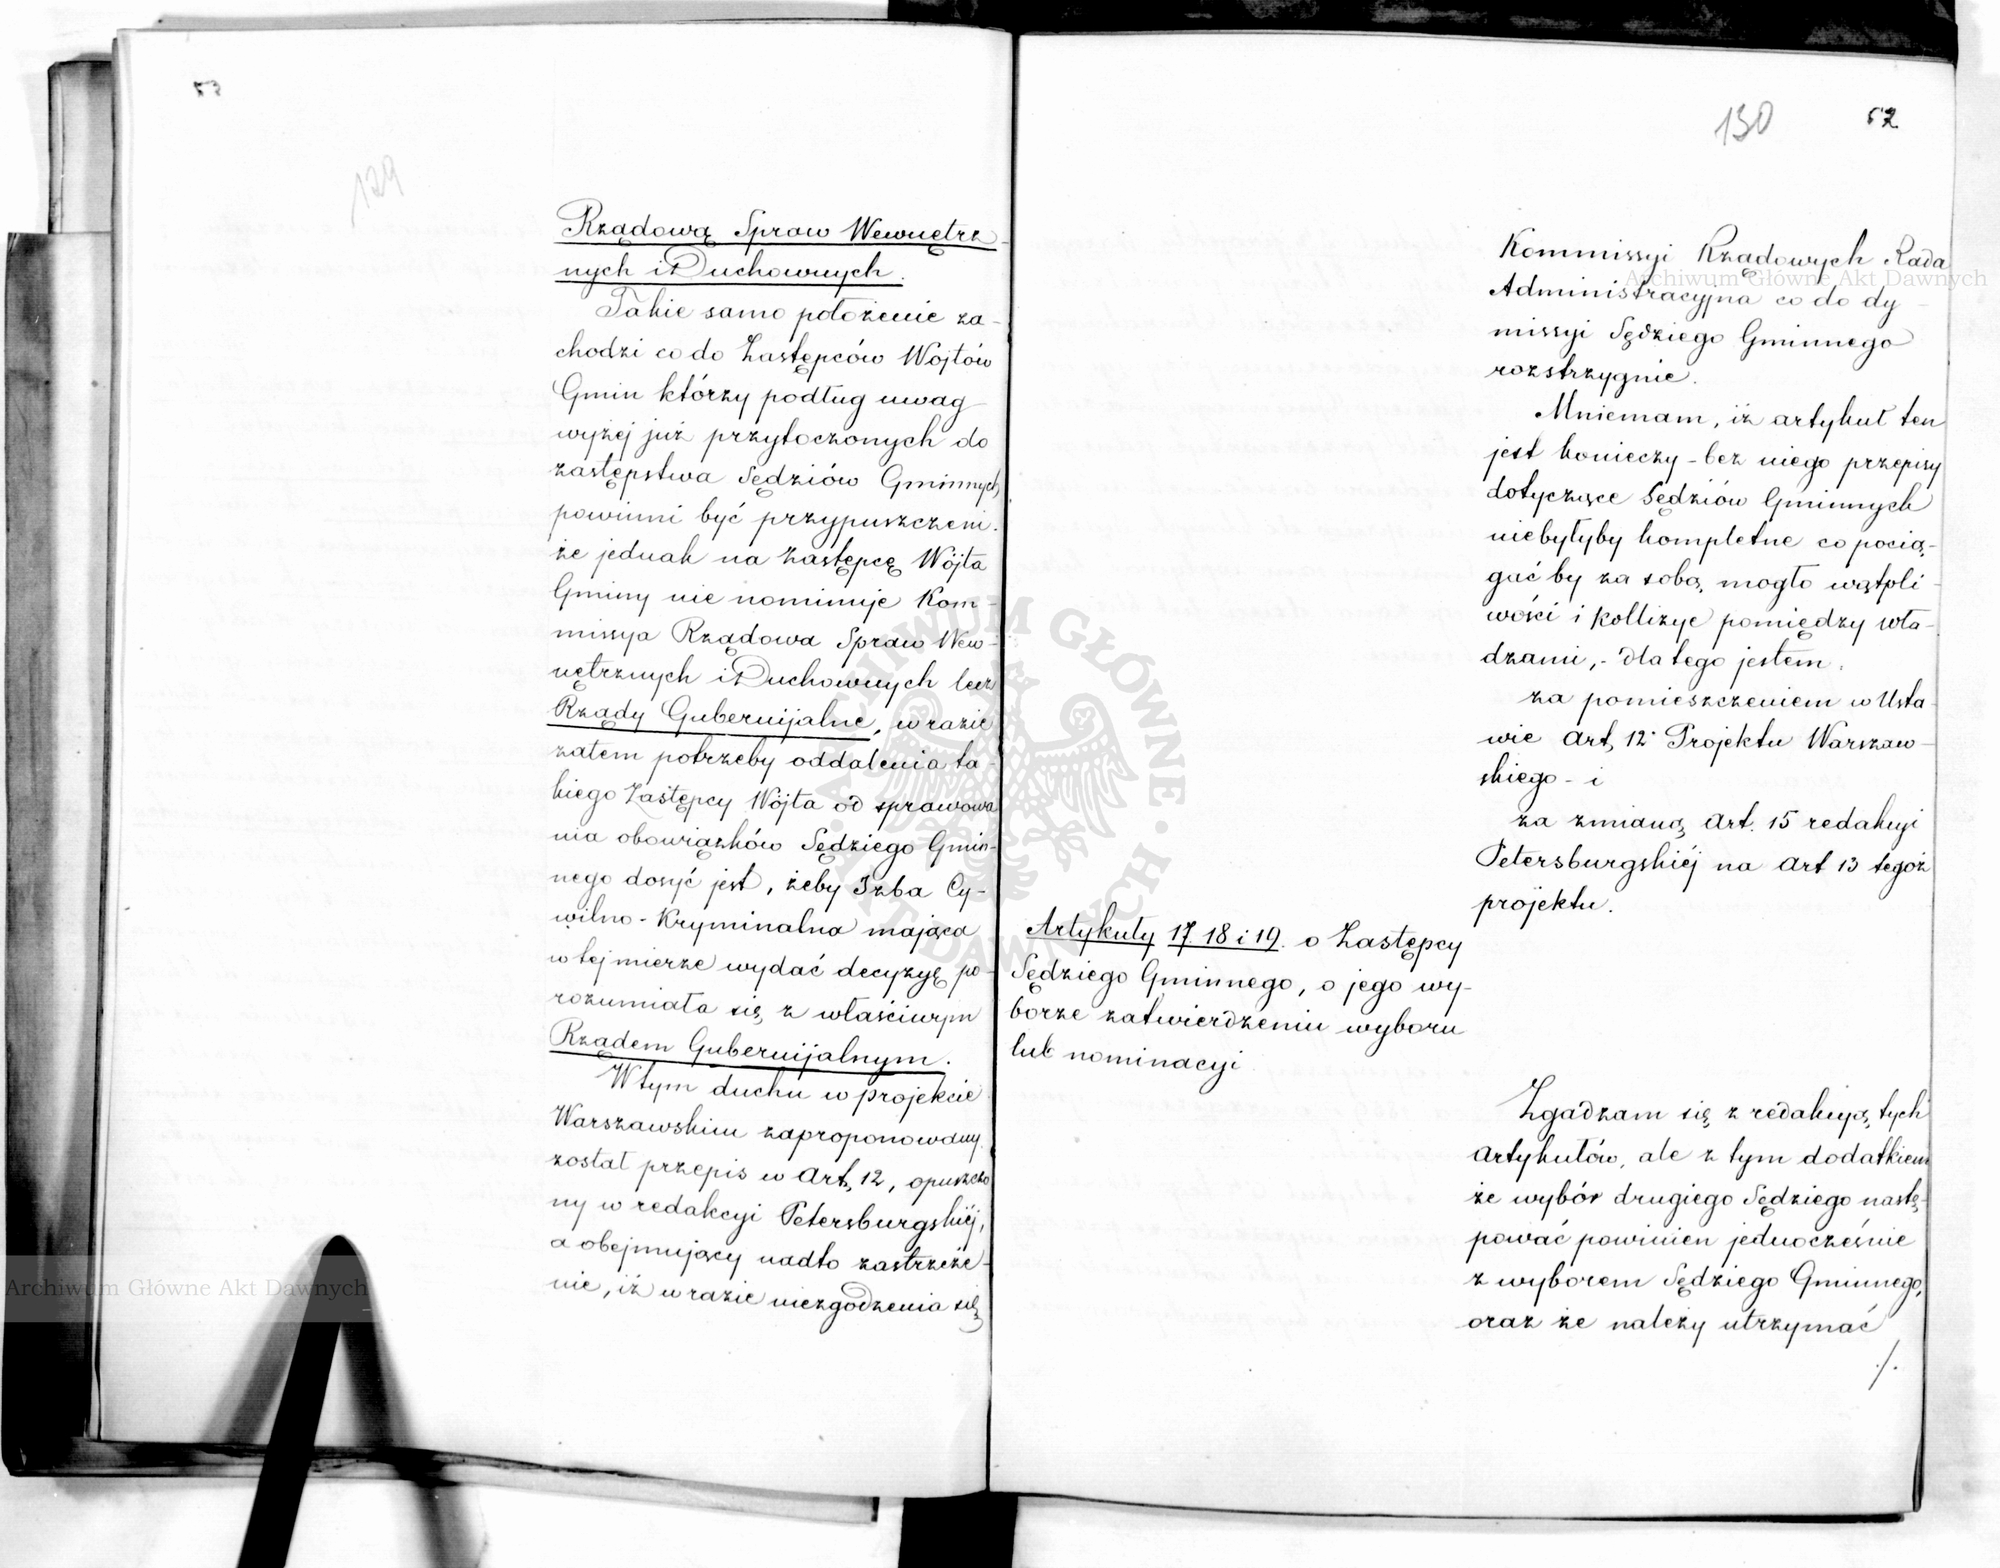 53
129
Rządową Spraw Wewnętrz-
nych i Duchownych.
Takie samo położenie za-
chodzi co do Zastępców Wójtów
Gmin którzy podług uwag
wyżej już przytoczonych do
zastępstwa Sędziów Gminnych
powinni być przypuszczeni.
że jednak na Zastępcę Wójta
Gminy nie nominuje Kom-
missya Rządowa Spraw Wew-
nętrznych i Duchownych lecz
Rządy Gubernijalne, w razie
zatem potrzeby oddalenia ta-
kiego Zastępcy Wójta od sprawowa
nia obowiązków Sędziego Gmin-
nego dosyć jest, żeby Izba Cy-
wilno-Kryminalna mająca
w tej mierze wydać decyzyę po-
rozumiała się z właściwym
Rządem Gubernijalnym.
W tym duchu w projekcie
Warszawskim zaproponowany
został przepis w Art. 12, opuszczo
ny w redakcyi Petersburgskiéj,
a obejmujący nadto zastrzeże-
nie, iż w razie niezgodzenia się
130
52
Kommissyi Rządowych Rada
Administracyjna co do dy-
missyi Sędziego Gminnego
rozstrzygnie.
Mniemam, iż artykuł ten
jest konieczy - bez niego przepisy
dotyczące Sędziów Gminnych
niebyłyby kompletne co pocią-
gać by za sobą mogło wątpli-
wości i kollizye pomiędzy wła-
dzami, - dla tego jestem.
za pomieszczeniem w Usta-
wie Art. 12 Projektu Warszaw-
skiego - i
za zmianą Art. 15 redakcyi
Petersburgskiéj na Art 13 tegoż
projektu.
Artykuły 17. 18 i 19. o Zastępcy
Sędziego Gminnego, o jego wy-
borze zatwierdzeniu wyboru
lub nominacyi
Zgadzam się z redakcyą tych
Artykułów, ale z tym dodatkiem
że wybór drugiego Sędziego nastę-
pować powinien jednocześnie
z wyborem Sędziego Gminnego,
oraz że należy utrzymać
./.
Archiwum Główne Akt Dawnych
Archiwum Główne Akt Dawnych
ARCHIWUM GŁÓWNE AKT DAWNYCH